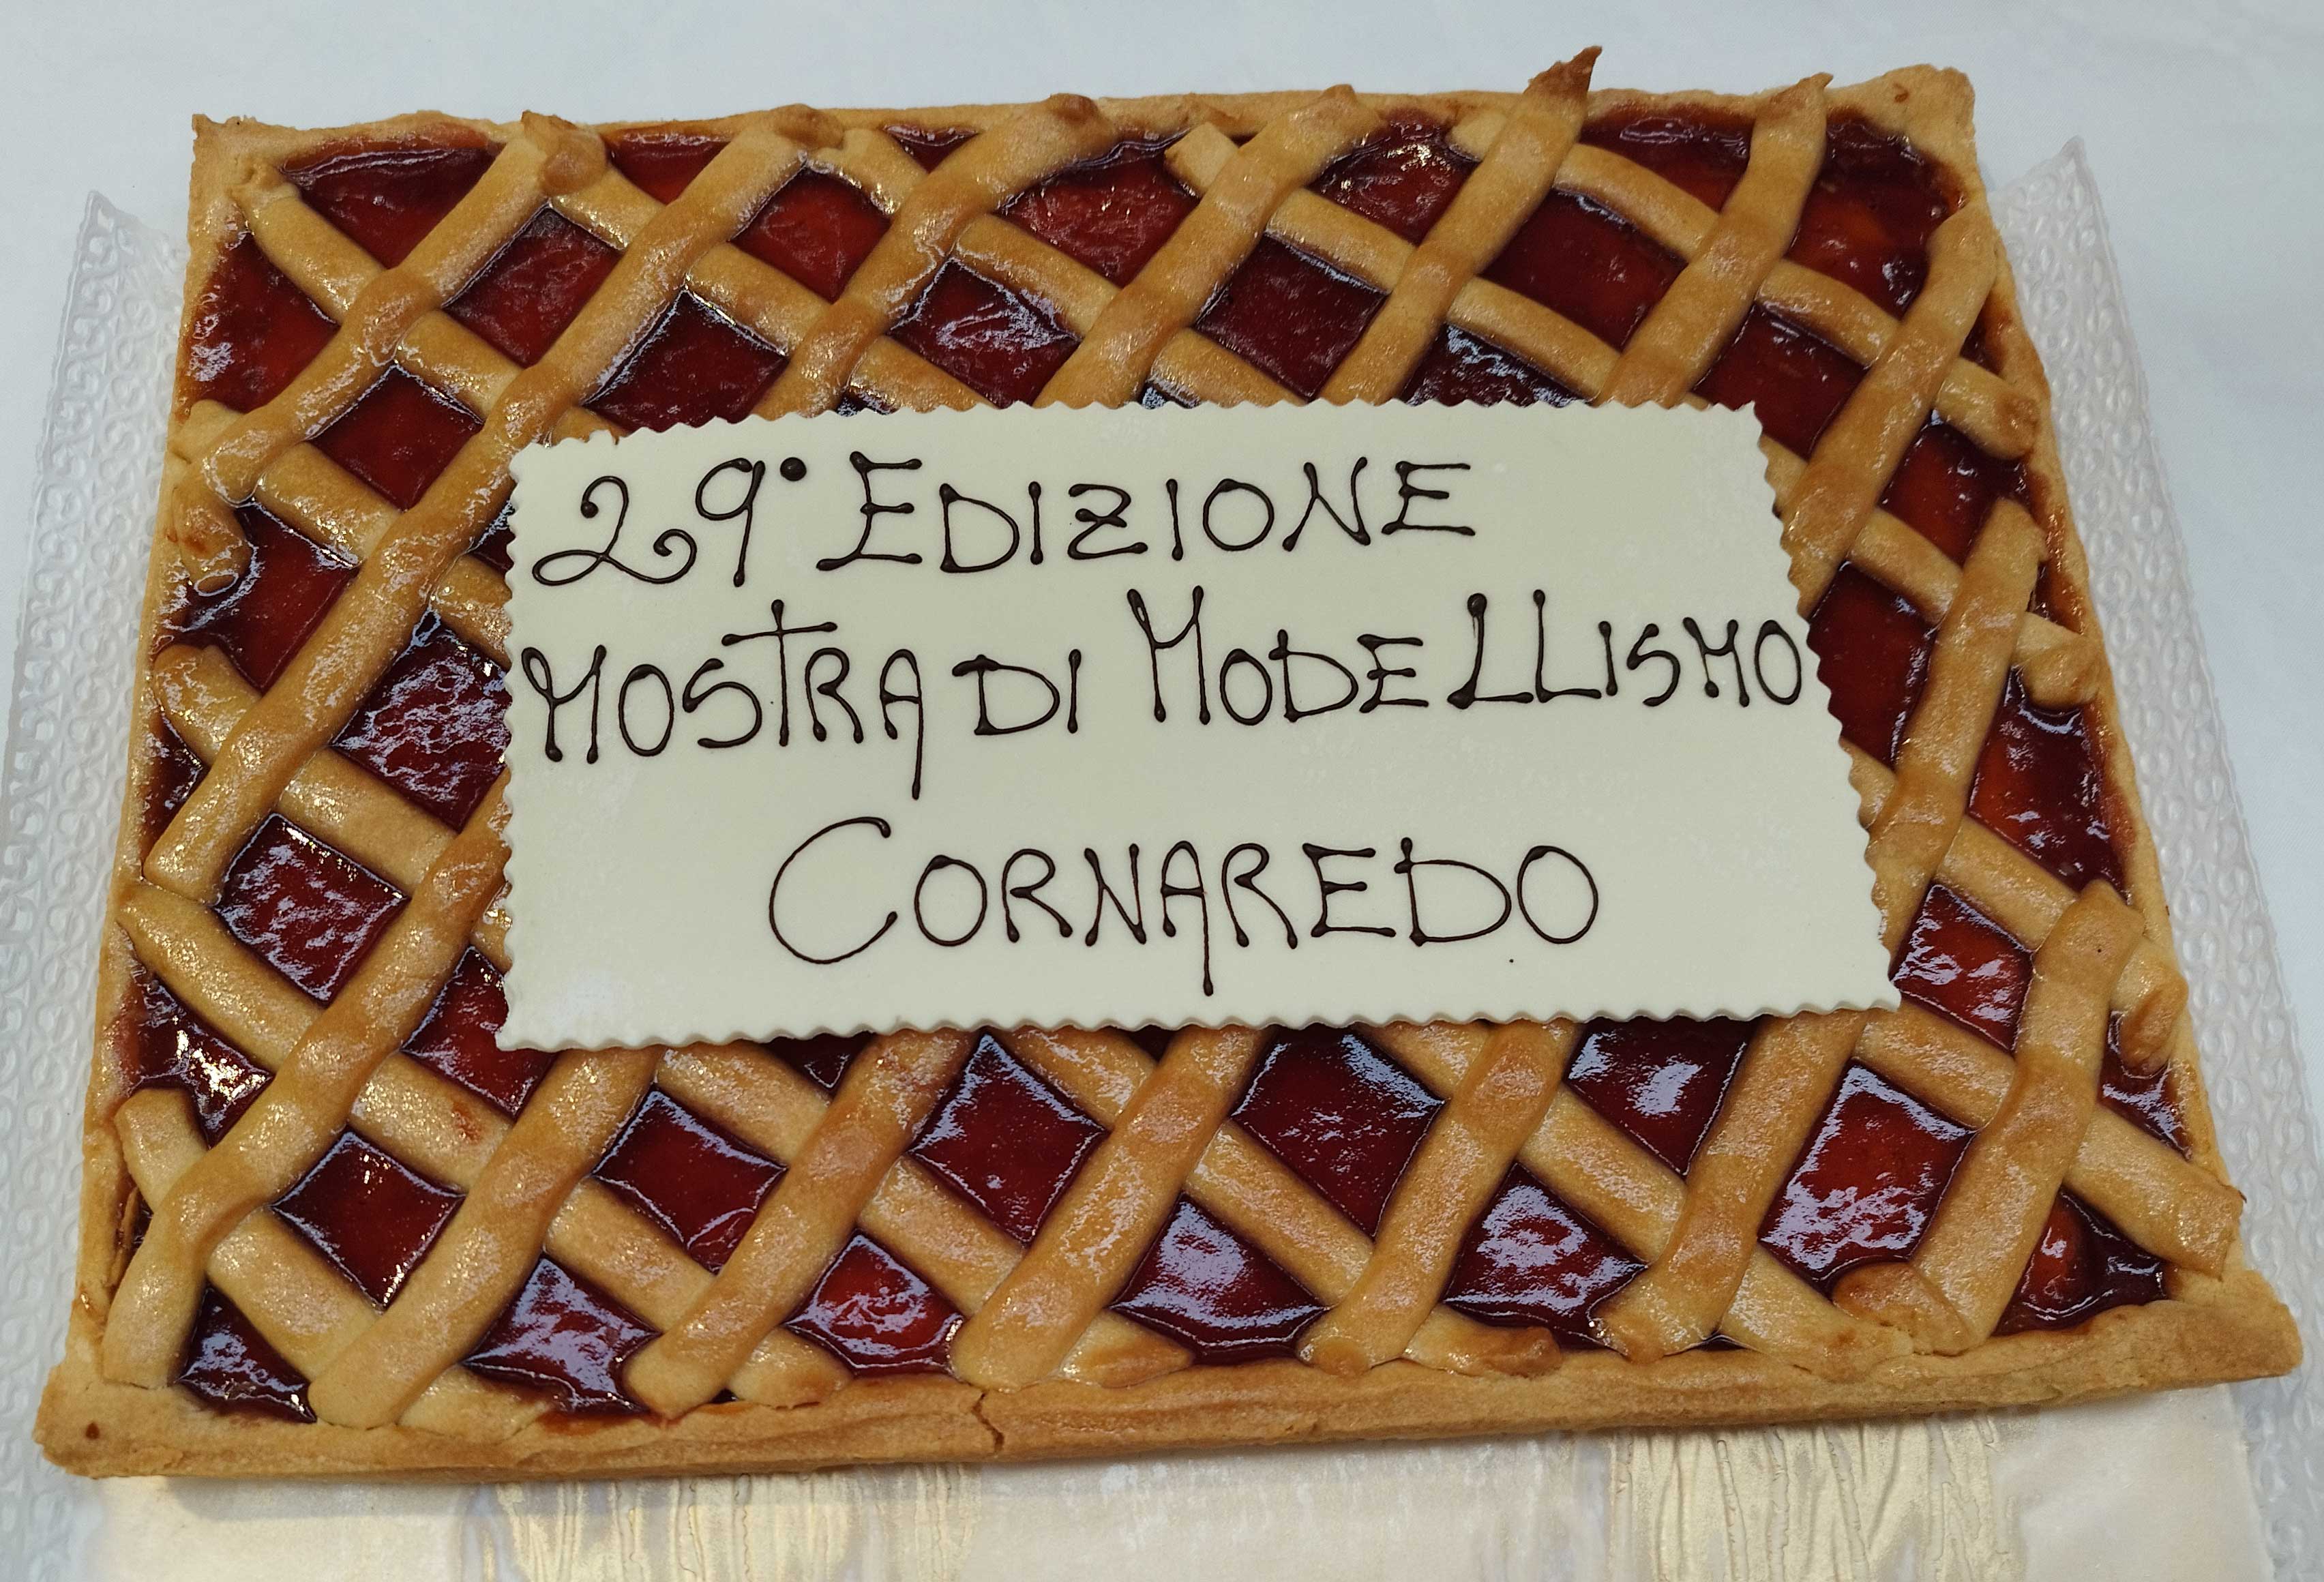 29° EDIZIONE
MOSTRA DI MODELLISMO
CORNAREDO